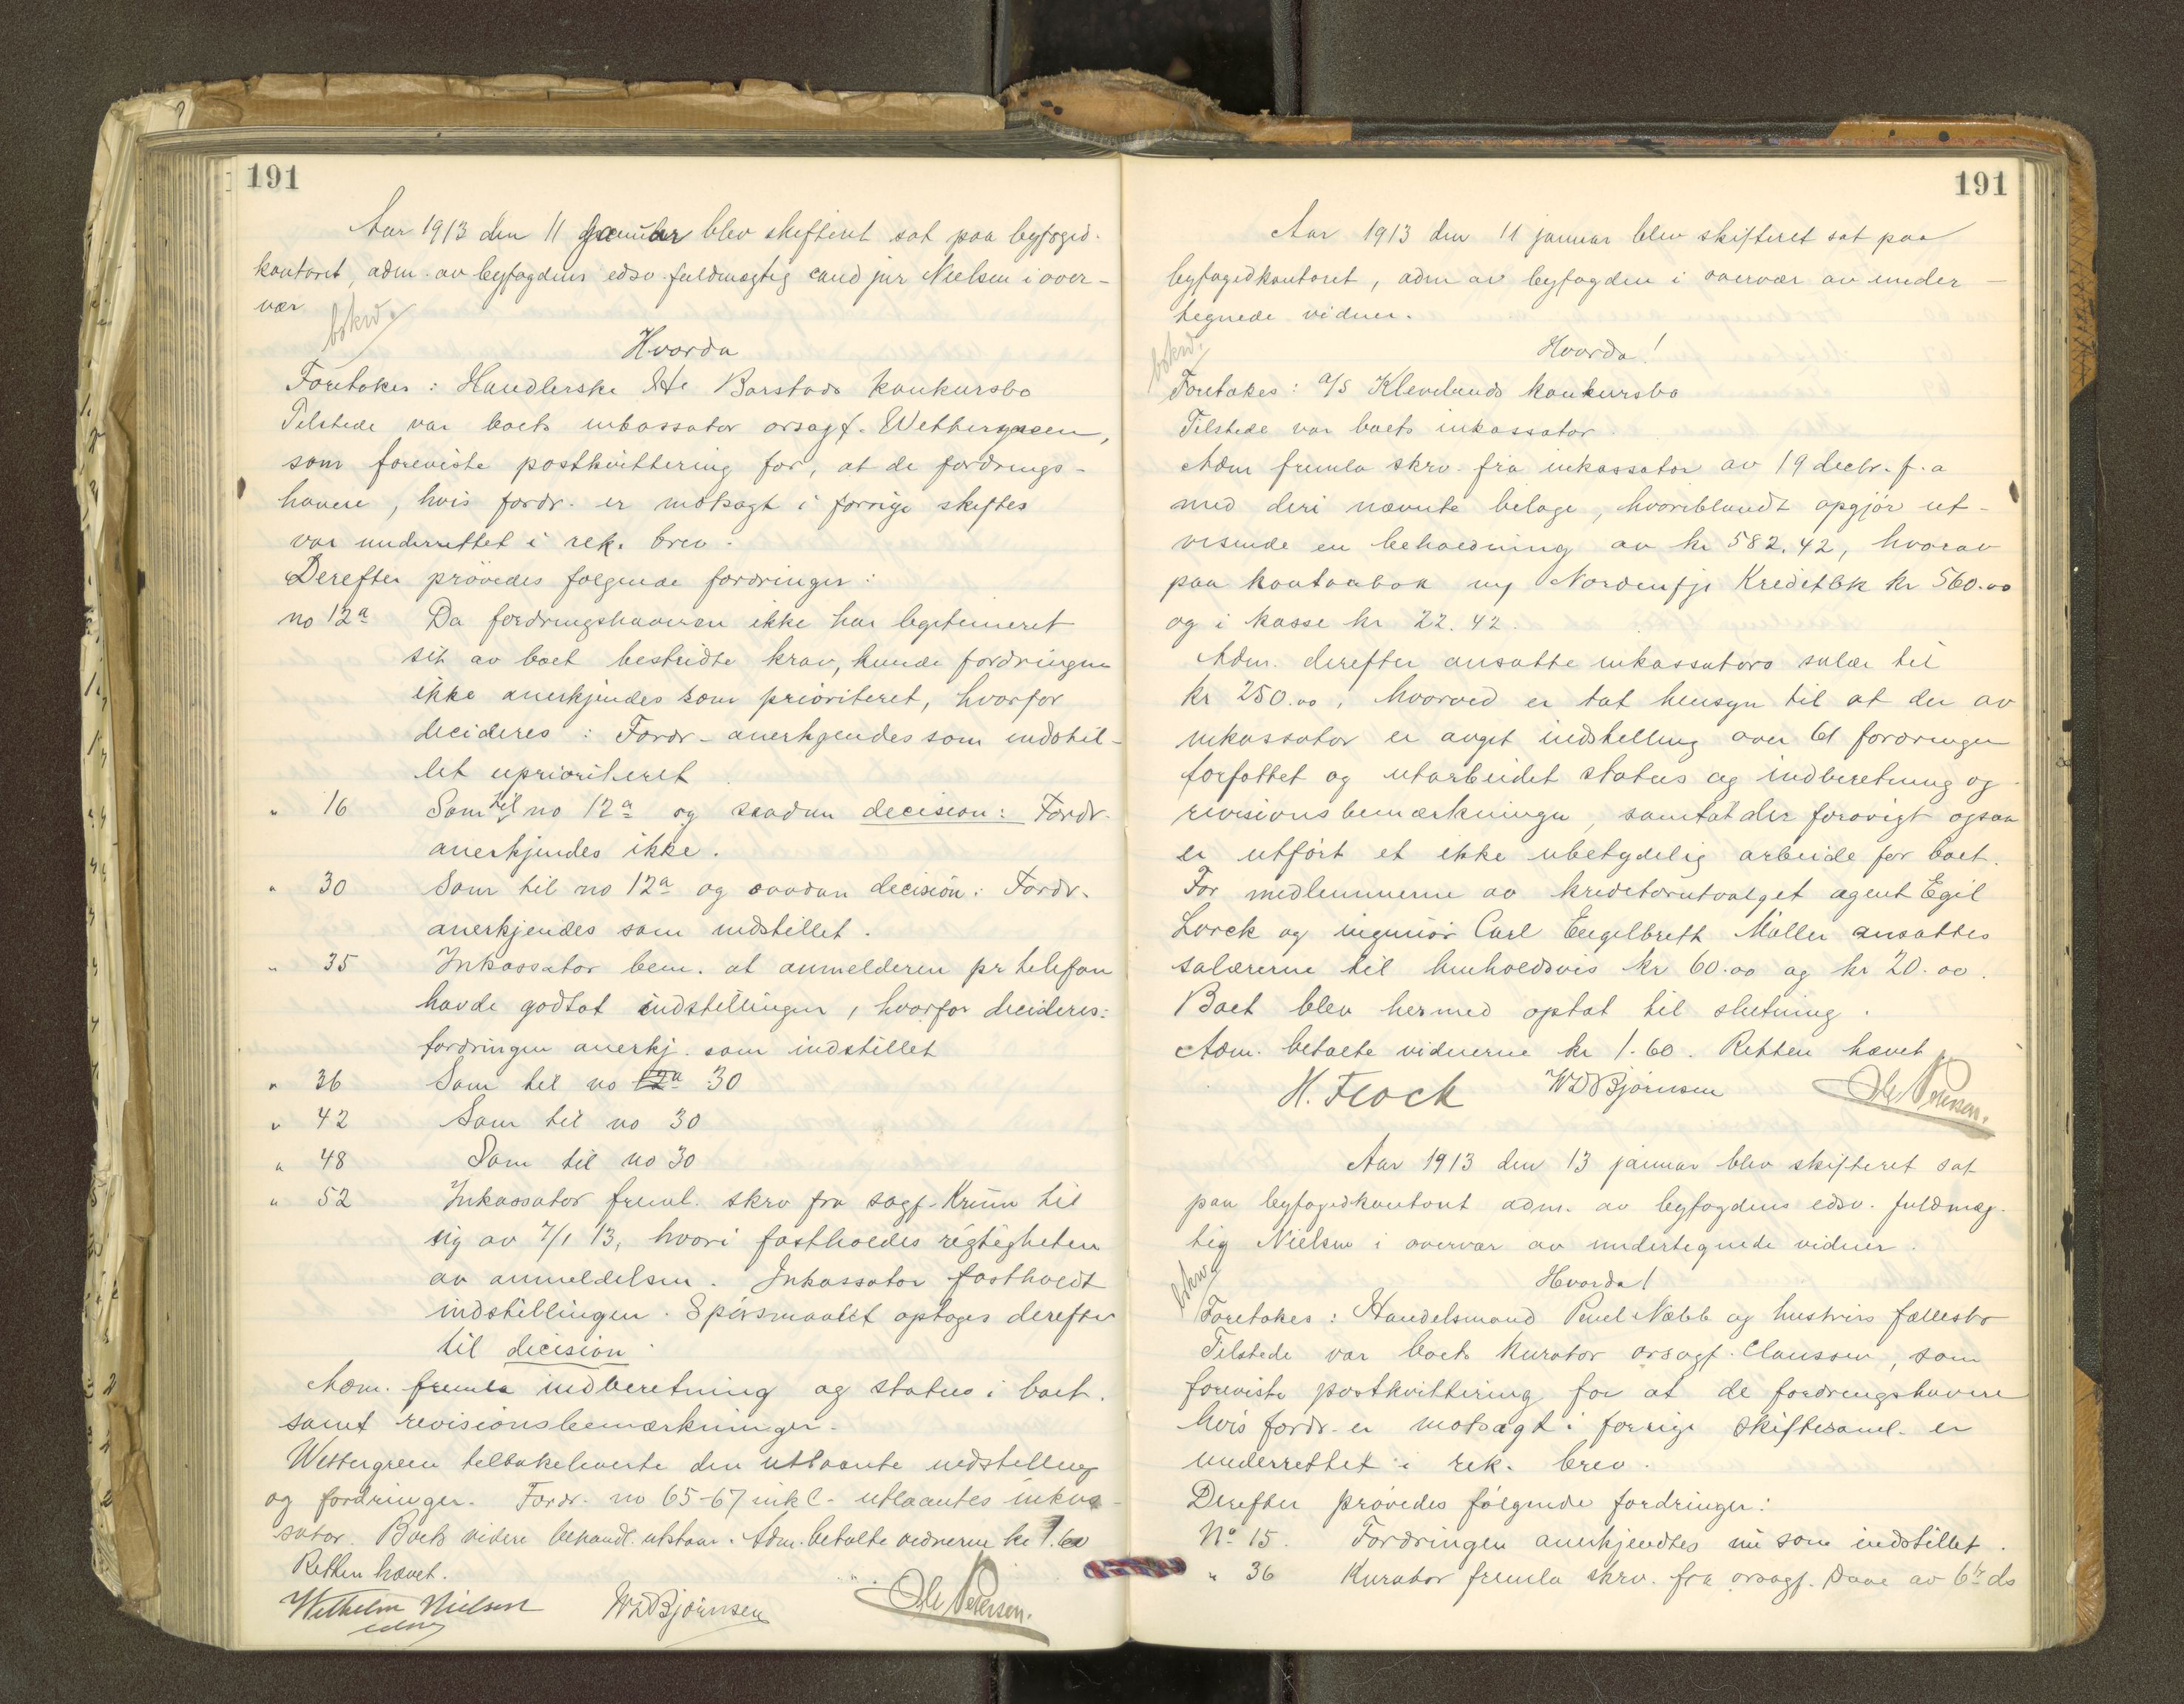 191
Aar 1913 den 11 januar blev skifteret sat paa byfoged-
kontoret, adm. av byfogdens edsv. fuldmægtig cand jur Nielsen i over-
vær
bskrd.
Hvorda
Foretokes: Handlerske Barstads konkursbo
Tilstede var boets inkassator orsagf. Wettergreen,
som foreviste postkvittering for, at de fordrings-
havere, hvis fordr. er motsagt i forrige skiftes
var underrettet i rek. brev.
Derefter prövedes følgende fordringer:
no 12a Da fordringshaveren ikke har legitimeret
sit av boet bestridte krav, kunde fordringen
ikke anerkjendes som prioriteret, hvorfor
decideres: Fordr. anerkjendes som indstil-
let uprioriteret
" 16 Som til no 12a og saadan decision: Fordr.
anerkjendes ikke.
" 30 Som til no 12a og saadan decision: Fordr.
anerkjendes som indstillet.
" 35 Inkassator bem. at anmelderen pr telefon
havde godtat indstillingen, hvorfor decideres:
fordringen anerkj. som indstillet
" 36 Som til no 12a 30
" 42 Som til no 30
" 48 Som til no 30
" 52 Inkassator freml. skrv fra sagf. Krüm til
sig av 7/1 13, hvori fastholdes rigtigheten
av anmeldelsen. Inkassator fastholdt
indstillingen. Spörsmaalet optoges derefter
til decision.
Adm. fremla indberetning og status i boet.
samt revisionsbemærkninger.
Wettergreen tilbakeleverte den utlaante indstilling
og fordringer. Fordr. no 65-67 inkl. utlaantes inkas-
sator. Boets videre behandl. utstaar. Adm. betalte vidnerne kr 1.60
Retten hævet.
Wilhelm Nielsen WDBjørnsen Ole Petersen.
edsv
191
Aar 1913 den 11 januar blev skifteret sat paa
byfogedkontoret, adm av byfogden i overvær av under-
tegnede vidner.
bskrd.
Hvorda!
Foretokes: A/S Klevelands konkursbo
Tilstede var boets inkassator.
Adm fremla skrv. fra inkassator av 19 decbr. f. a
med deri nævnte belage, hvoriblandt opgjör ut-
visende en beholdning av kr 582.42, hvorav
paa kontrabok m/ Nordenfje Kreditbk kr 560.00
og i kasse kr 22.42.
Adm. derefter ansatte inkassators salær til
kr 250.00, hvorved er tat hensyn til at der av
inkassator er avget indstilling over 61 fordringer
forfattet og utarbeidet status og indberetning og
revisionsbemærkninger, samt at der forövrigt ogsaa
er utfört et ikke ubetydelig arbeide for boet.
For medlemmerne av kreditorutvalget agent Egil
Lorck og ingeniör Carl Engelbreth Møller ansattes
salærerne til henholdsvis kr 60.00 og kr 20.00.
Boet blev hermed optat til slutning.
Adm. betalte vidnerne kr 1.60. Retten hævet
H. Flock WDBjørnsen Ole Petersen.
Aar 1913 den 13 januar blev skifteret sat
paa byfogedkontoret adm. av byfogdens edsv. fuldmæg-
tig Nielsen i overvær av undertegnede vidner.
bskrd.
Hvorda!
Foretokes: Handelsmand Paul Næbb og hustrus fællesbo
Tilstede var boets kurator orsagf. Claussen, som
foreviste postkvittering for at de fordringshavere
hvis fordr. er motsagt i forrige skiftesaml. er
underrettet i rek. brev.
Derefter prövedes følgende fordringer:
No 15. Fordringen anerkjendtes nu som indstillet.
" 36 Kurator fremla skrv. fra orsagf. Daae av 6te ds